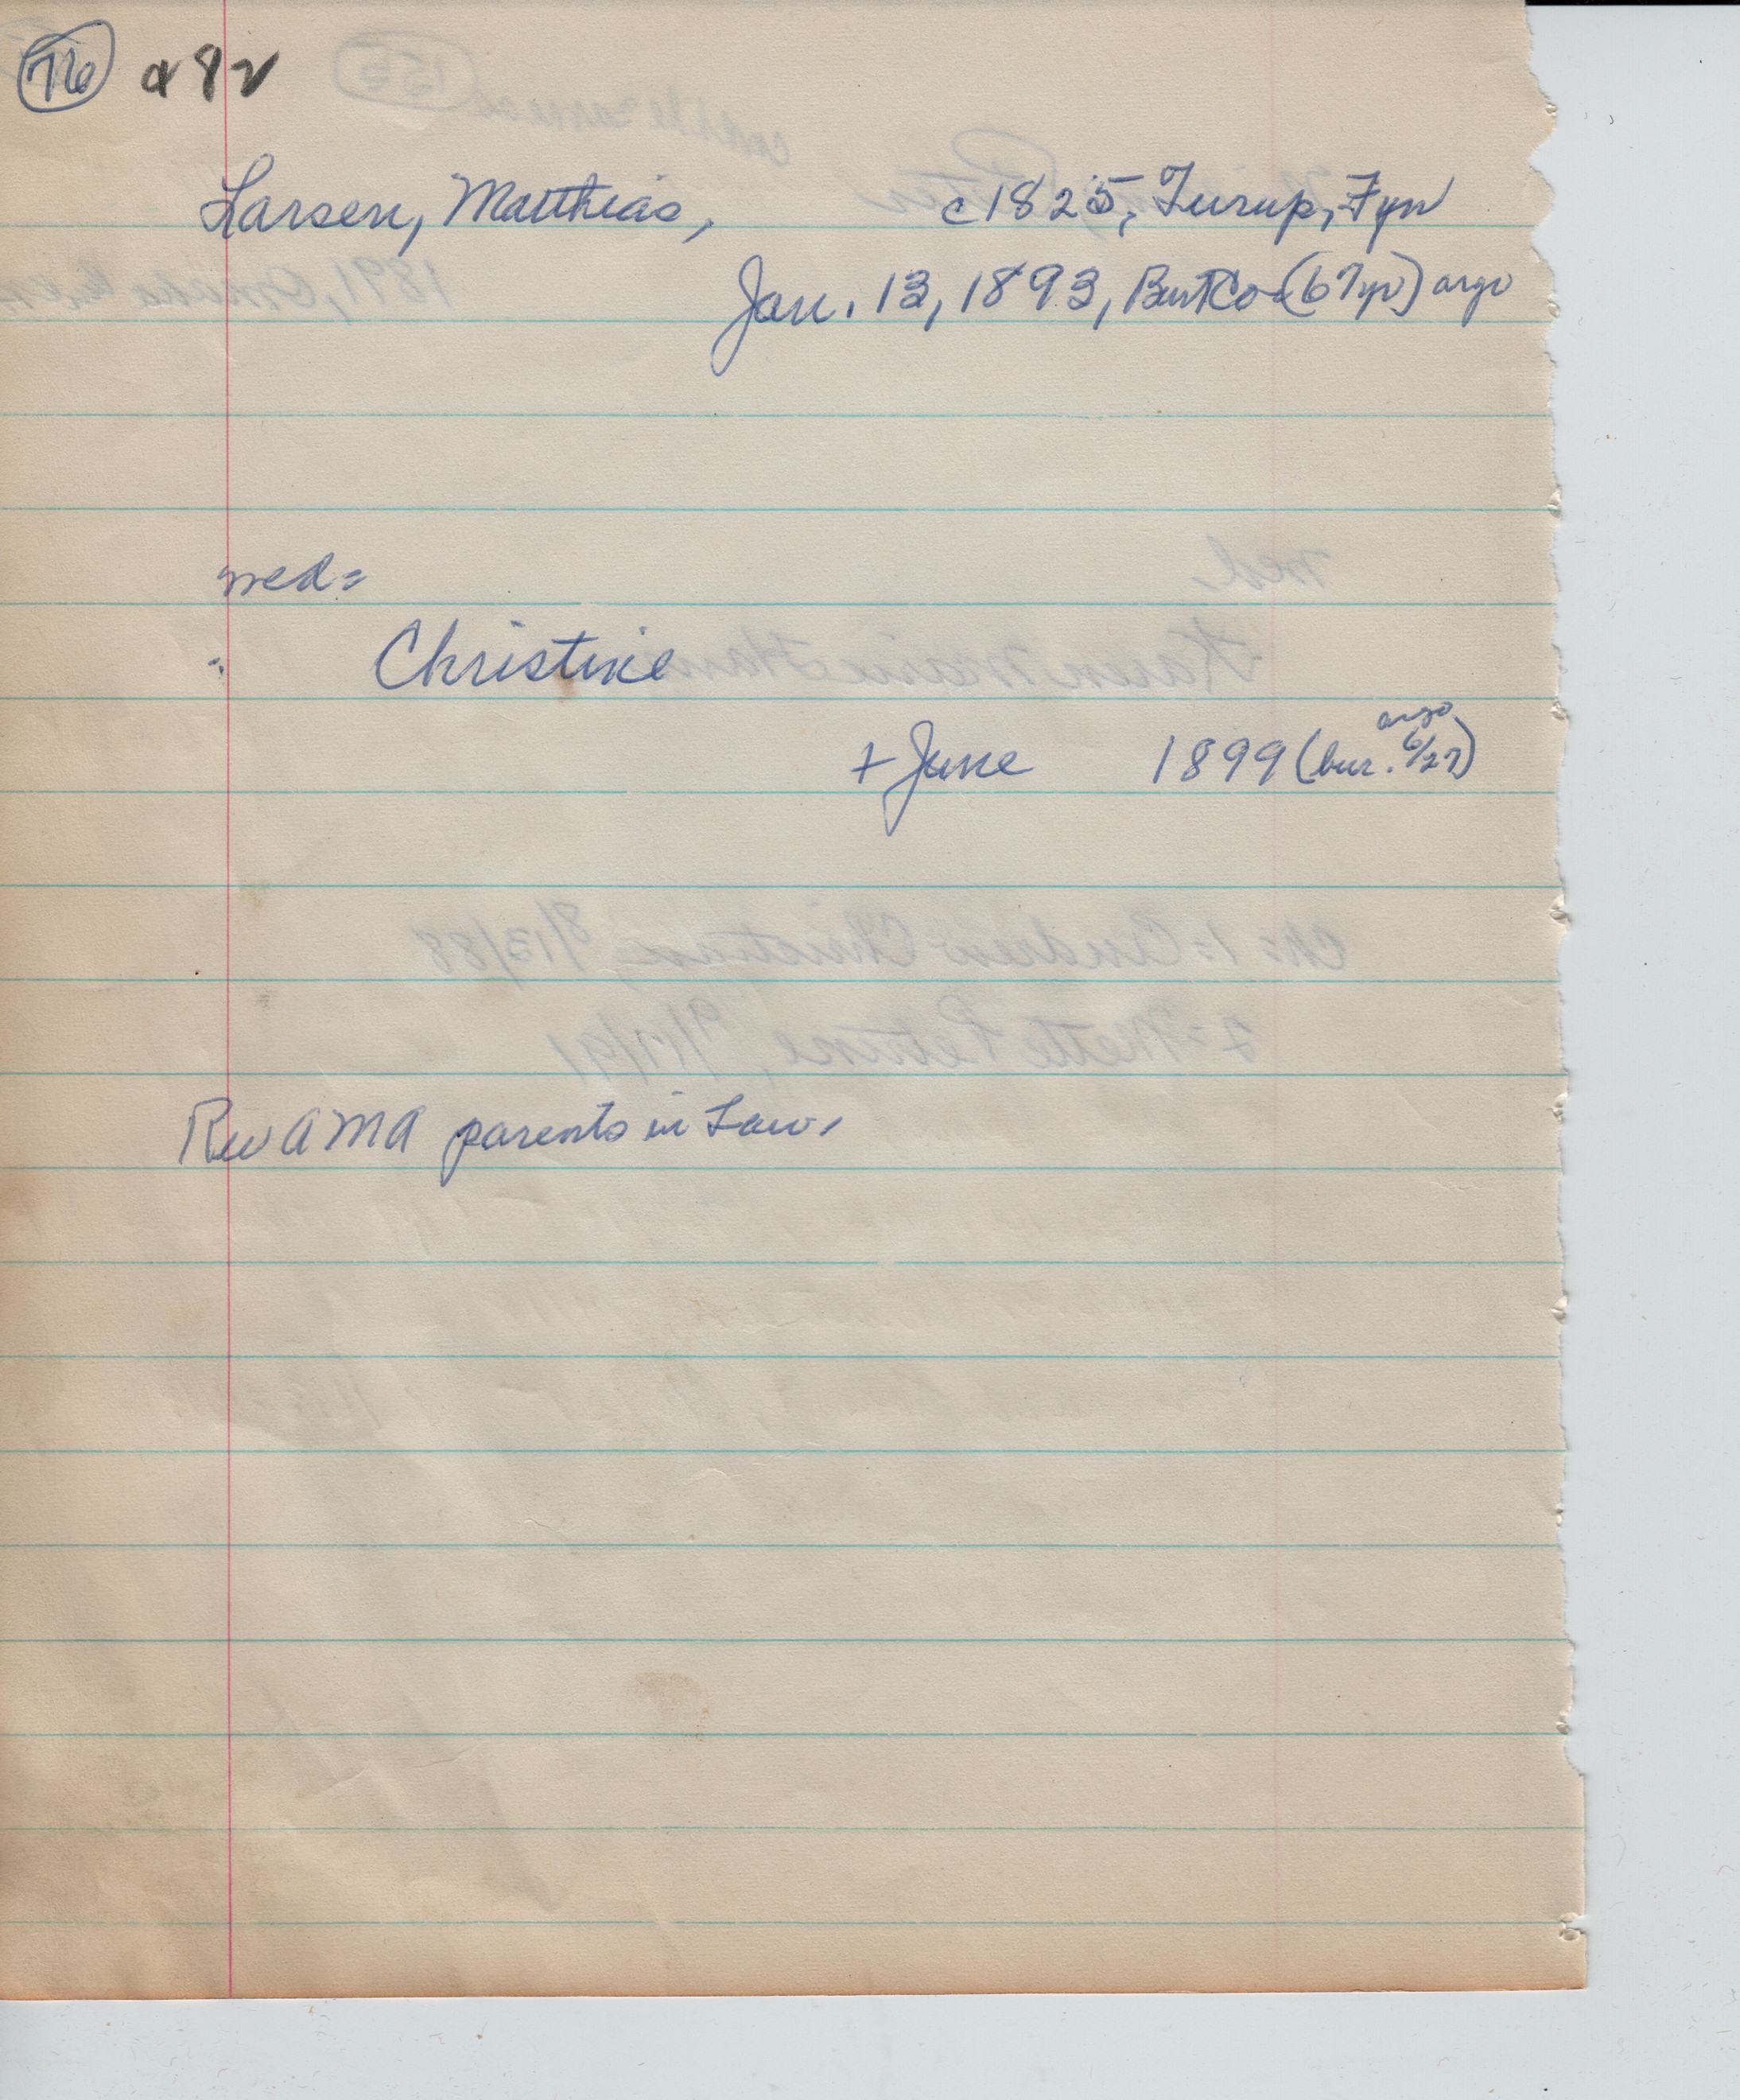 76 a 82
Larsen, Matthias, c1825, Turup, Fyn
Jan. 13, 1893, BurtCo (67yr) argo
med=
Christine
argo
+ June 1899 (bur. 6/27)
Rev AMA parents in Law,